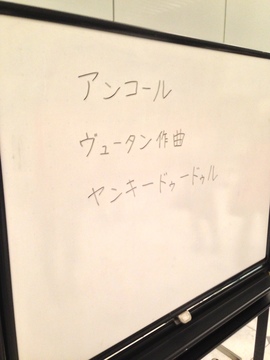 アンコール
ヴュータン作曲
ヤンキードゥードゥル